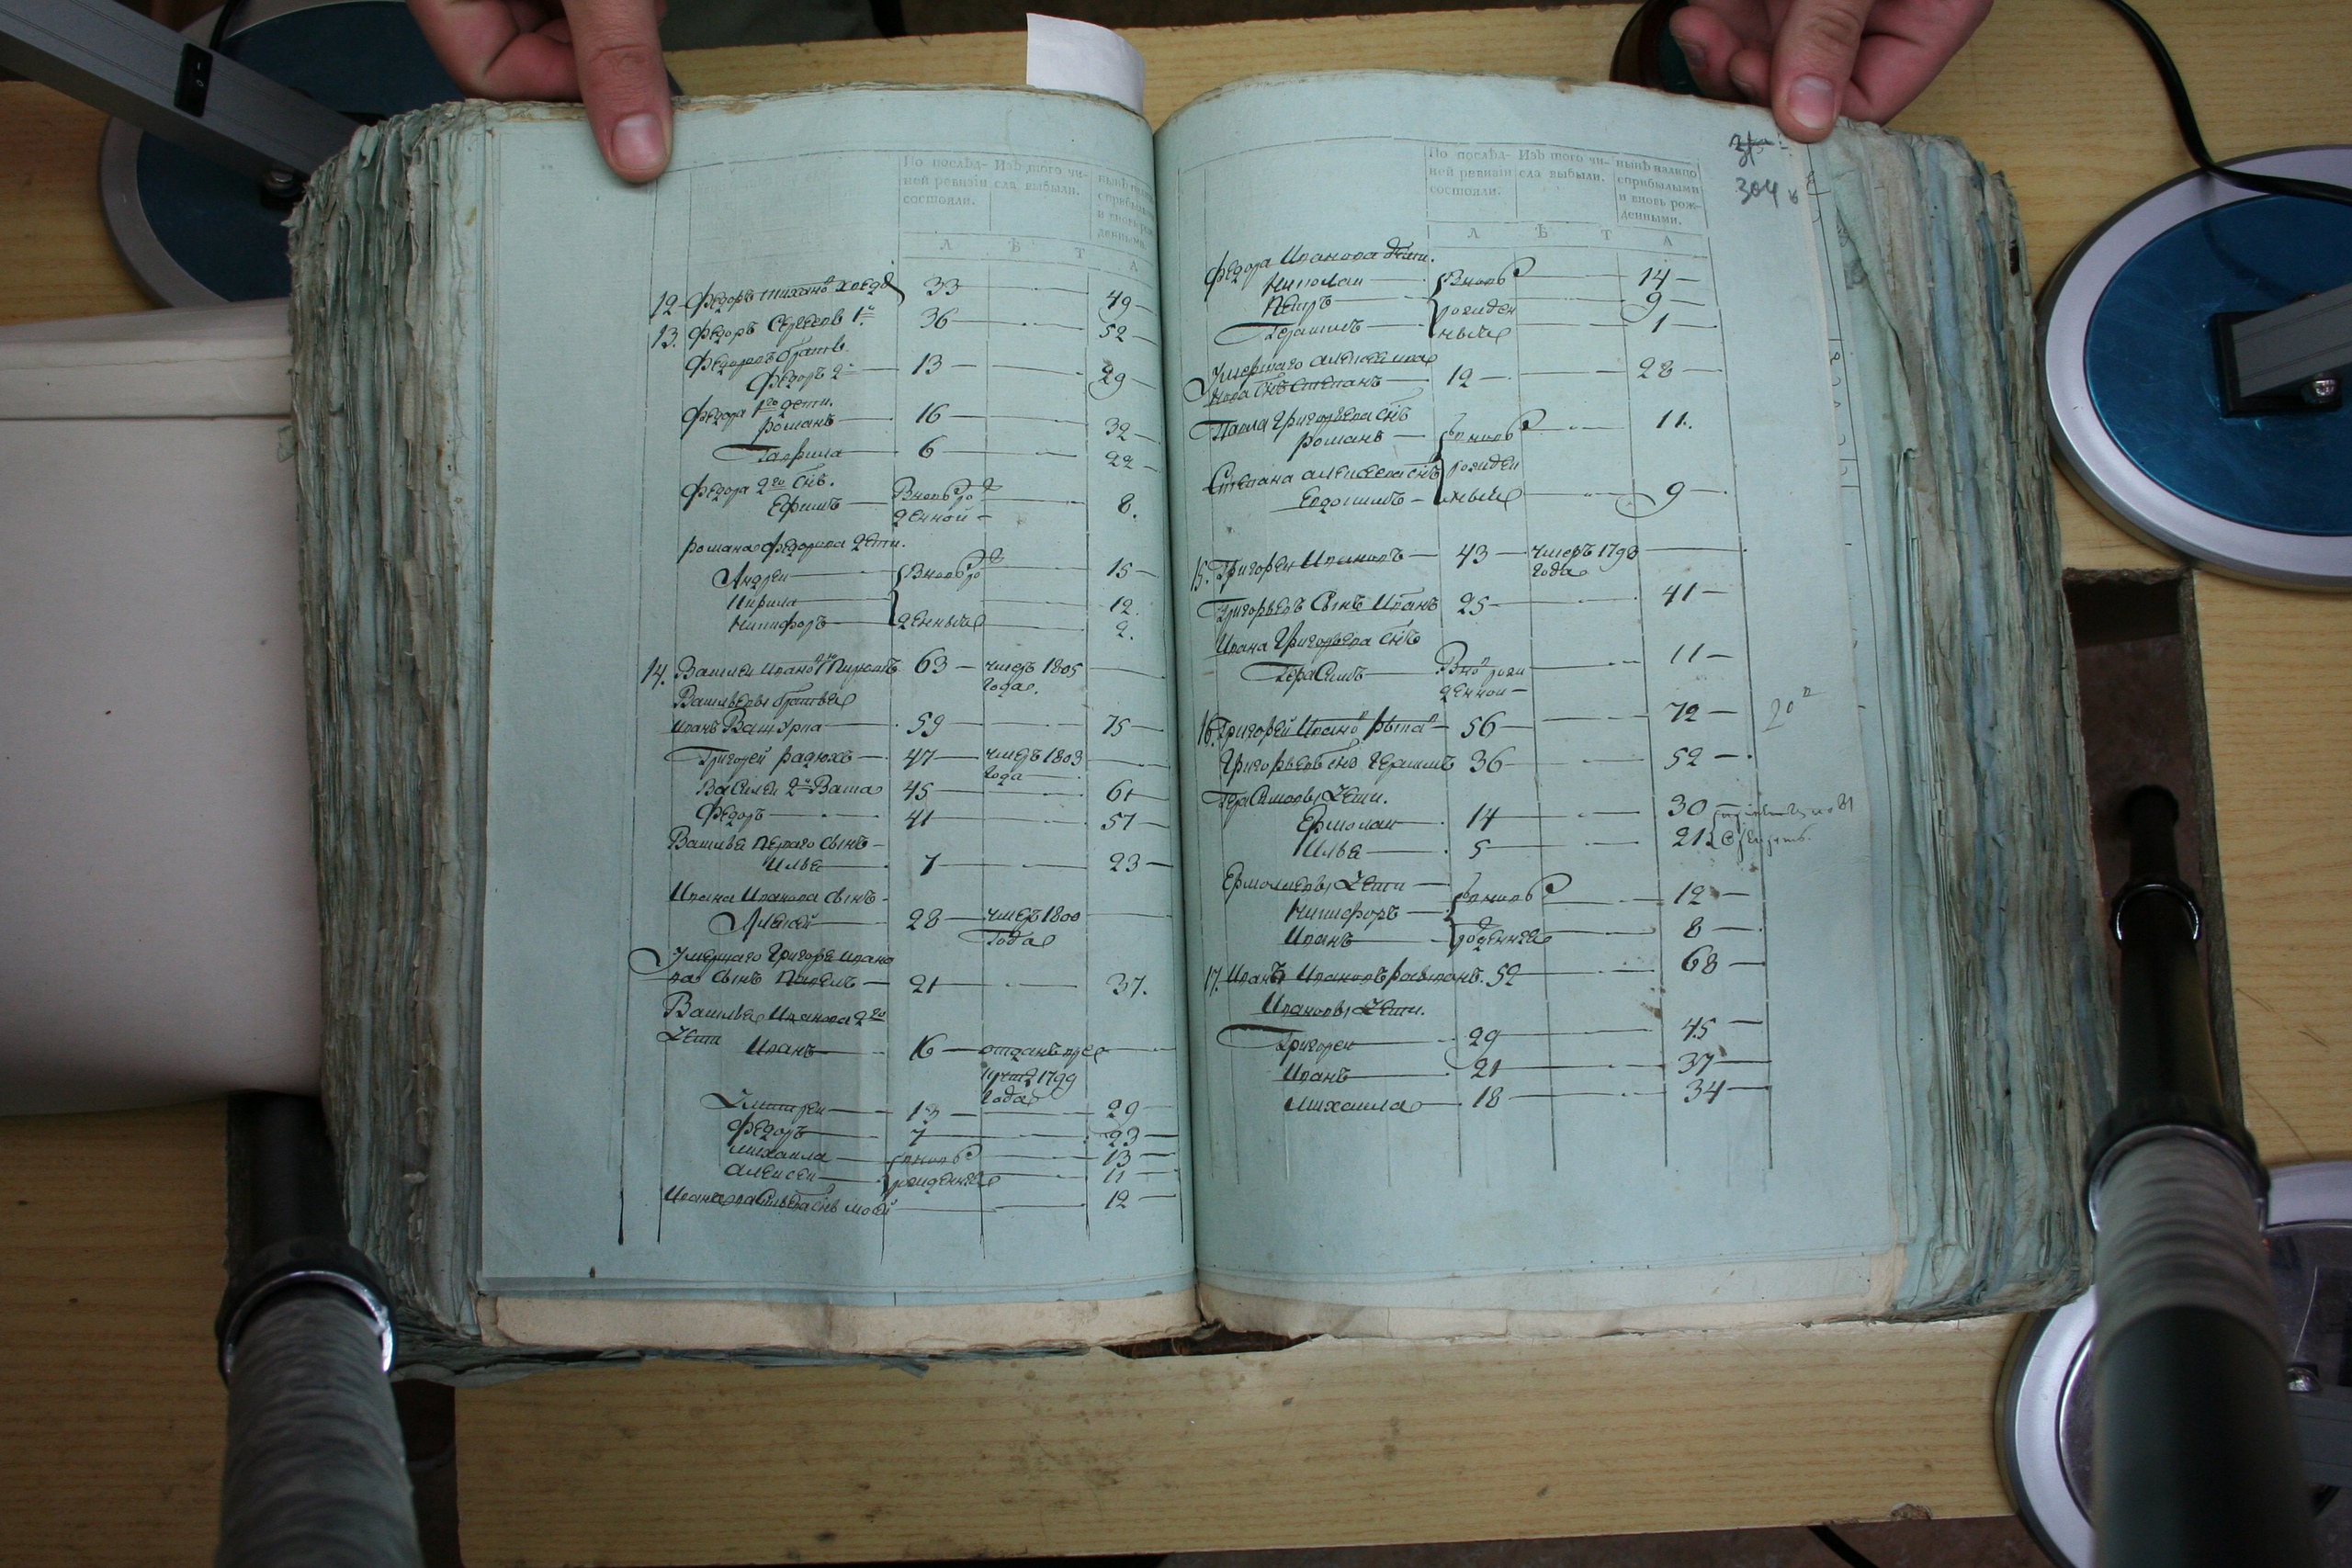 По послѣд- Изъ того чи- нынѣ налицо
ней ревизіи сла выбыли. сприбылыми
состояли. и вновь рож-
денными.
Л Ѣ Т А
12 Федоръ 33 49
13. Федоръ 1й 36 52
Федоровъ братъ
Федоръ 2й 13 29
Федора 1го дети.
Романъ 16 32
Гаврила 6 22
Федора 2го снъ.
Ефимъ Вновь ро 8.
денной
Романа Федорова дети.
Андрей Вновь ро 15
Кирила 12.
Никифоръ денныя 2.
14. Василей Ивановъ 63 умеръ 1805
года.
Васильевы братья
Иванъ 59 75
Григорей 47 умеръ 1803
года
Василей 2й 45 61
Федоръ 41 57
Василья перваго сынъ
Илья 7 23
Ивана Иванова сынъ
Алексей 28 умеръ 1800
года
Умершаго Григорья Ивано
ва сынъ Павелъ 21 37.
Василья Иванова 2го
дети Иванъ 16 отданъ врек
руты 1799
года
Дмитрей 13 29
Федоръ 7 23
Михаила вновь 13
Алексей рожденныя 11
Ивана Васильева снъ 12
304
По послѣд- Изъ того чи- нынѣ налицо
ней ревизіи сла выбыли. сприбылыми
состояли. и вновь рож-
денными.
Л Ѣ Т А
Федора Иванова дети.
Николай Вновь 14
Петръ рожден 9
Герасимъ ныя 1
Умершаго Алексея Ива
нова снъ Степанъ 12 28
Павла Григорьева снъ
Романъ вновь 11.
Степана Алексеева снъ рожден
Евдокимъ ныя 9
15. Григорей Ивановъ 43 умеръ 1798
года
Григорьевъ сынъ Иванъ 25 41
Ивана Григорьева снъ
Герасимъ Внов рож 11
денной
16. Григорей Иванов 56 72
Григорьевъ снъ Герасимъ 36 52
Герасимовы дети.
Ермолай 14 30
Илья 5 21
Ермолаевы дети
Никифоръ вновь 12
Иванъ рожденныя 8
17. Иванъ Ивановъ 52 68
Ивановы дети.
Григорей 29 45
Иванъ 21 37
Михаила 18 34